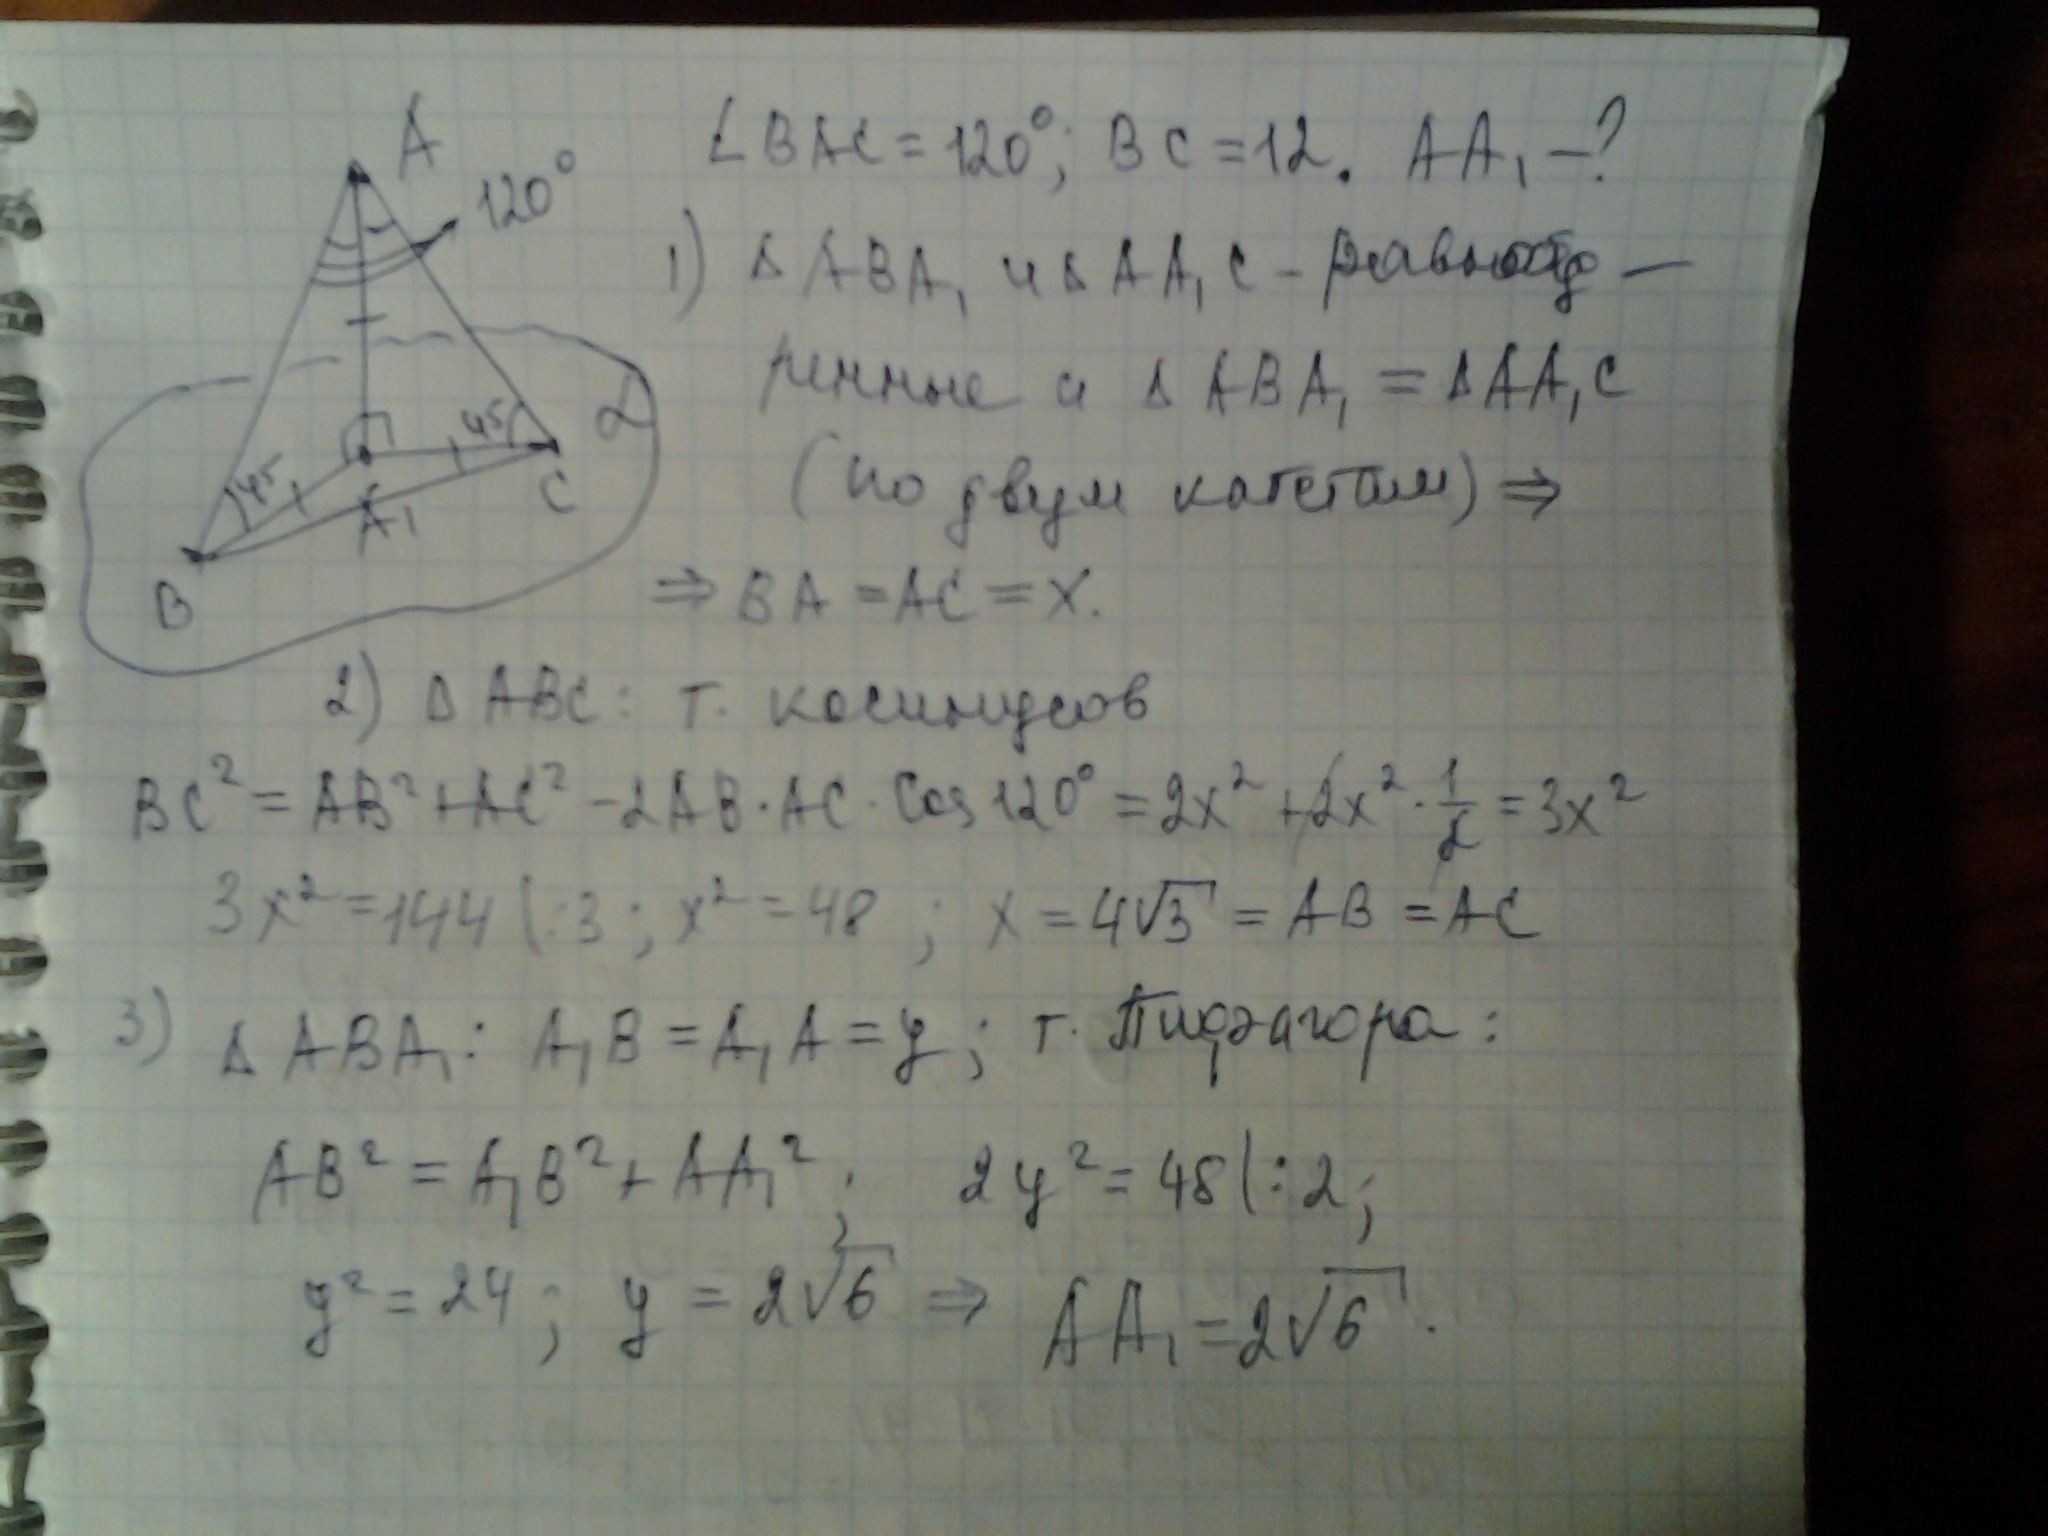 A
120°
45
45
A₁
B
C
α
∠BAC = 120°; BC = 12. AA₁ – ?
1) Δ ABA₁ и Δ AA₁C – равнобед –
ренные и Δ ABA₁ = Δ AA₁C
(по двум катетам) ⇒
⇒ BA = AC = x.
2) Δ ABC: т. косинусов
BC² = AB² + AC² – 2AB · AC · Cos 120° = 2x² + 2x² · 1/2 = 3x²
3x² = 144 | :3 ; x² = 48 ; x = 4√3 = AB = AC
3) Δ ABA₁: A₁B = A₁A = y; т. Пифагора:
AB² = A₁B² + AA₁² ; 2y² = 48 | : 2;
y² = 24 ; y = 2√6 ⇒ AA₁ = 2√6.